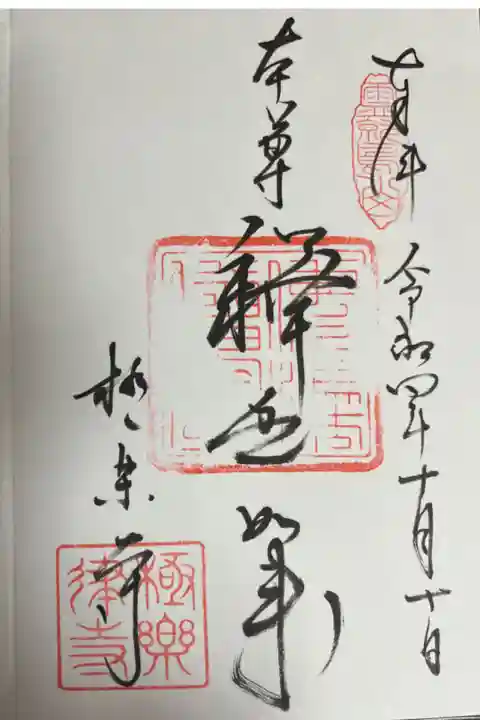 奉拝
令和四年十月十日
本尊
釋迦如来
極楽寺
極樂
律寺